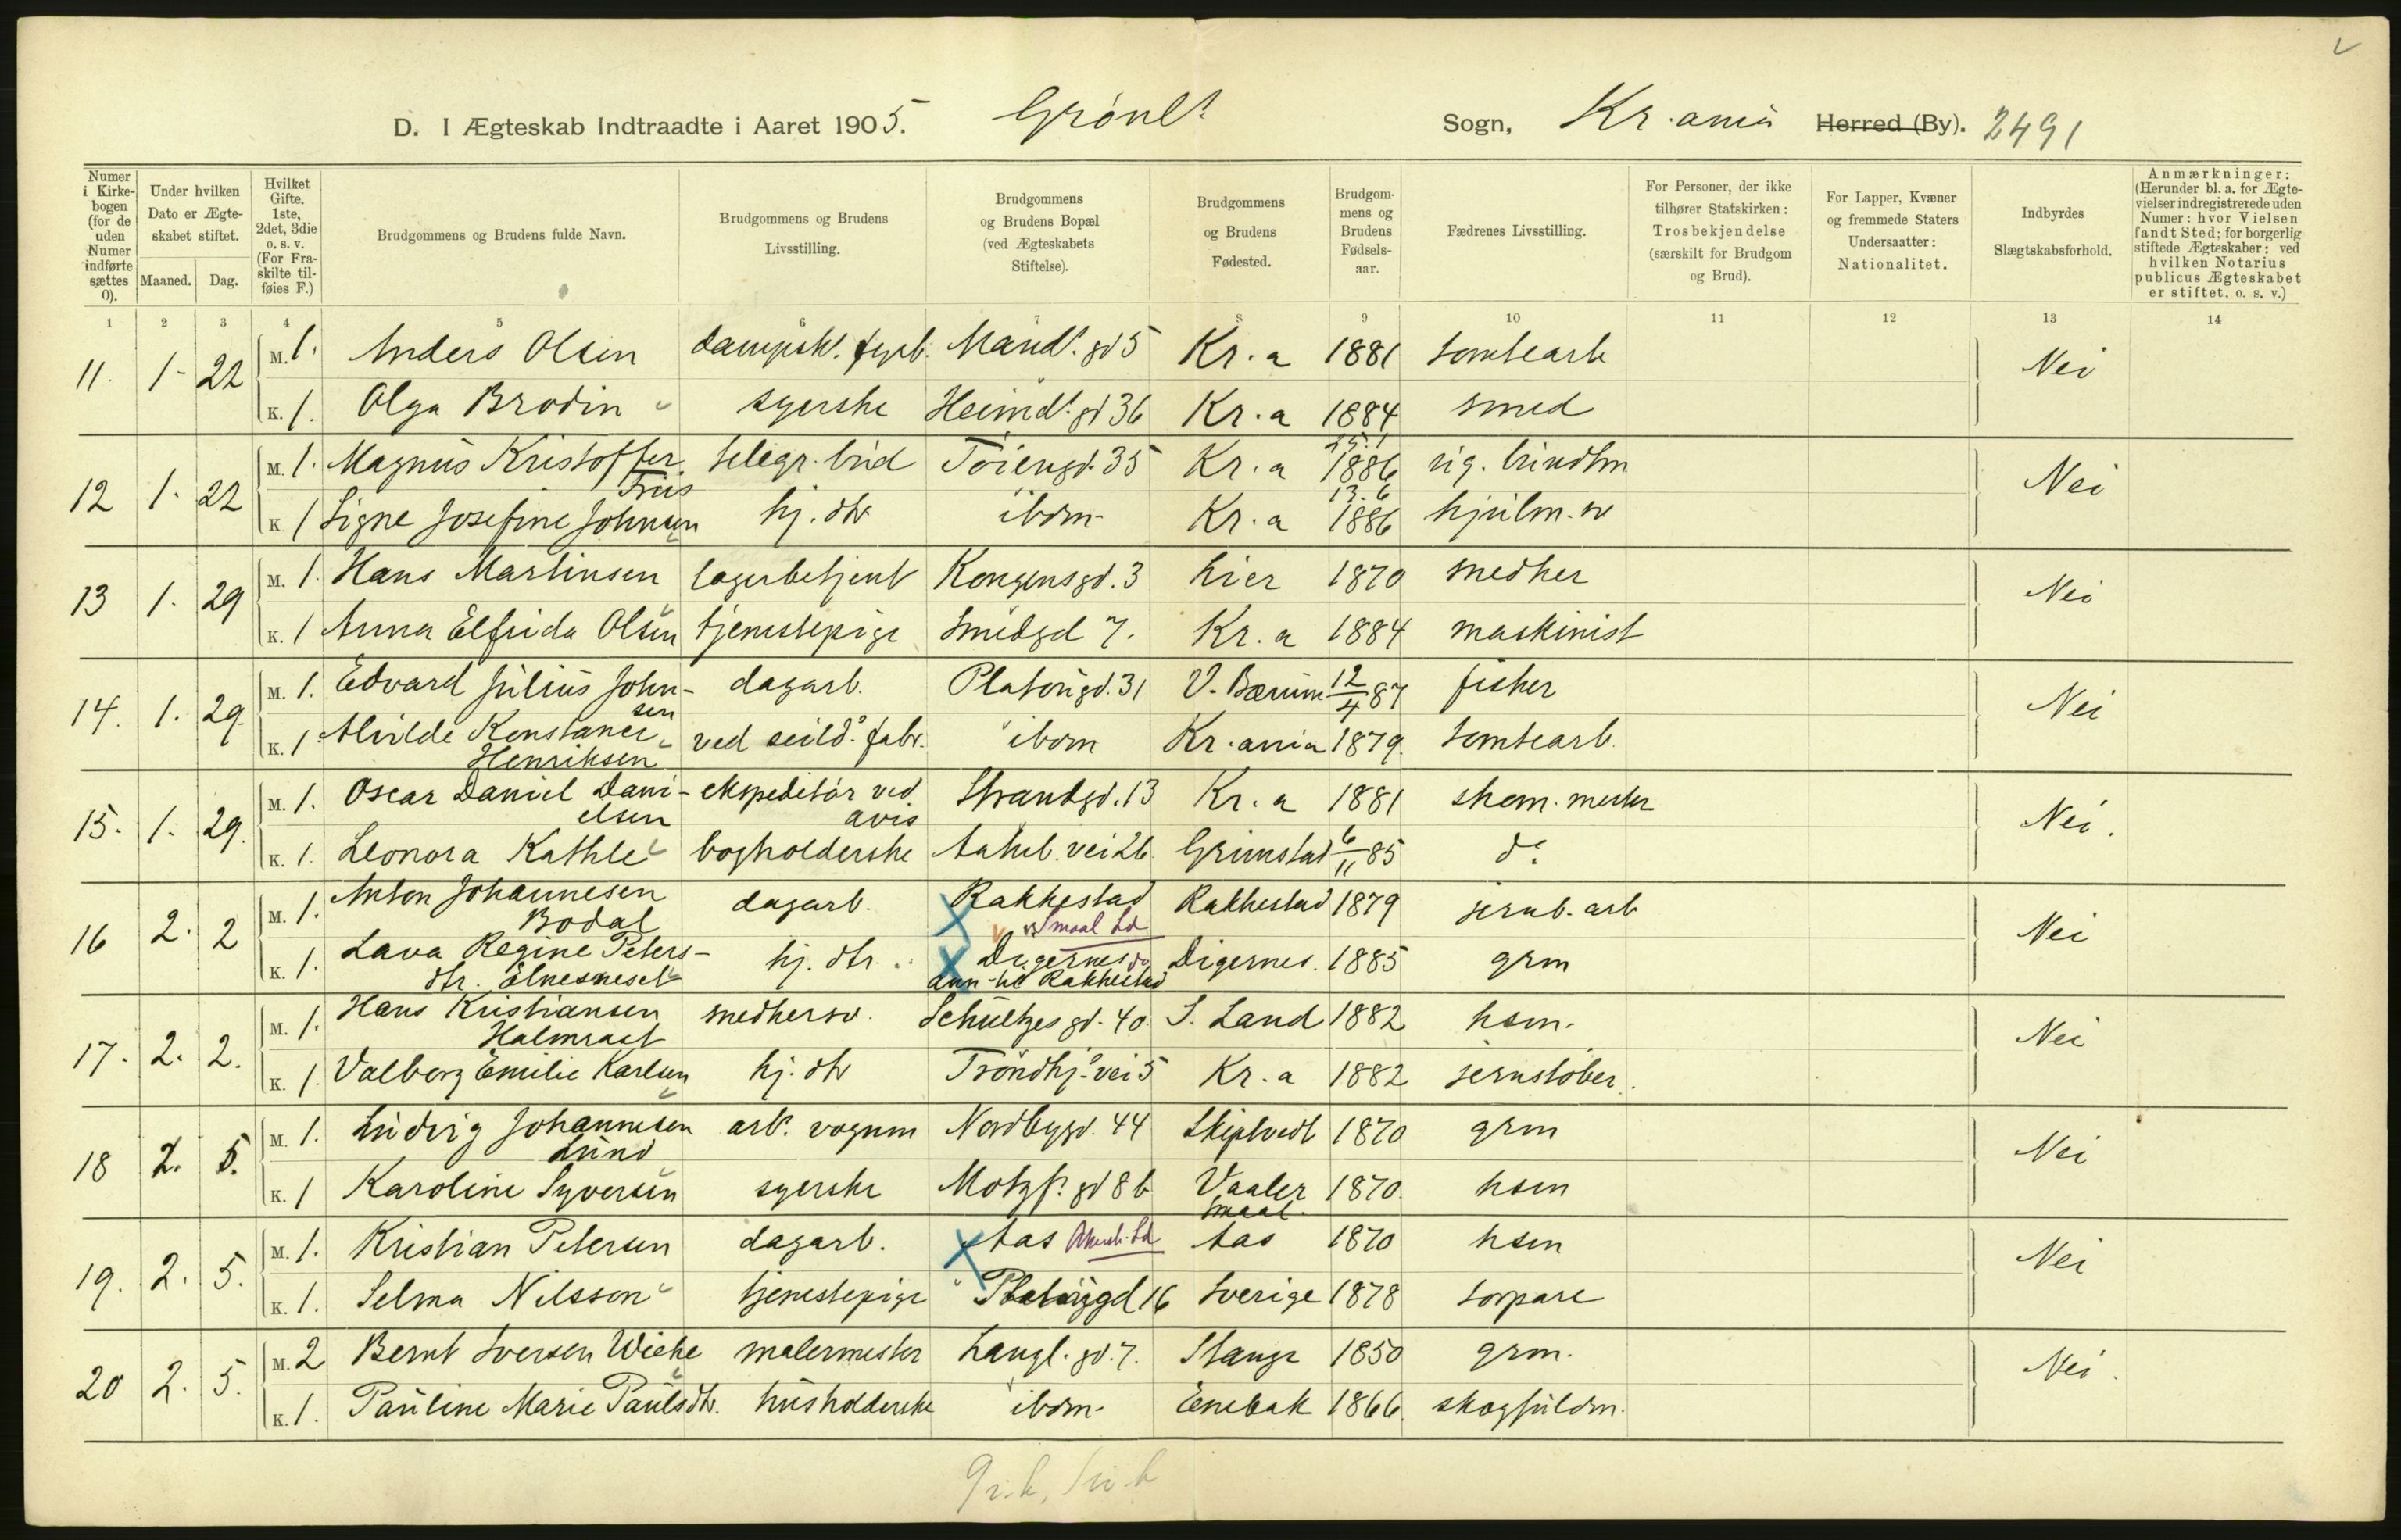 D. I Ægteskab Indtraadte i Aaret 1905. Grønl. Sogn, Kr.ania Herred (By). 2491
Numer i Kirkebogen (for de uden Numer indførte sættes 0).
Under hvilken Dato er Ægteskabet stiftet.
Maaned. Dag.
Hvilket Gifte. 1ste, 2det, 3die o. s. v. (For Fraskilte tilføies F.)
Brudgommens og Brudens fulde Navn.
Brudgommens og Brudens Livsstilling.
Brudgommens og Brudens Bopæl (ved Ægteskabets Stiftelse).
Brudgommens og Brudens Fødested.
Brudgommens og Brudens Fødselsaar.
Fædrenes Livsstilling.
For Personer, der ikke tilhører Statskirken: Trosbekjendelse (særskilt for Brudgom og Brud).
For Lapper, Kvæner og fremmede Staters Undersaatter: Nationalitet.
Indbyrdes Slægtskabsforhold.
Anmærkninger: (Herunder bl. a. for Ægtevielser indregistrerede uden Numer: hvor Vielsen fandt Sted; for borgerlig stiftede Ægteskaber: ved hvilken Notarius publicus Ægteskabet er stiftet, o. s. v.)
1 2 3 4 5 6 7 8 9 10 11 12 13 14
11. 1- 22 M. 1. Anders Olsen dampsk. fyrb. Mandl. gd 5 Kr.a 1881 tomtearb Nei
K. 1. Olga Brodin syerske Heimdl. gd 36 Kr.a 1884 smed
12 1. 22 M. 1. Magnus Kristoffer Friis telegr. bud Tøiengd. 35 Kr.a 25.1 1886 rig. bundtm Nei
K. 1 Signe Josefine Johnsen hj. dtr ibdm- Kr.a 13.6 1886 hjulm. sv
13 1. 29 M. 1. Hans Martinsen lagerbetjent Kongensgd. 3 Lier 1870 snedker Nei
K. 1 Anna Elfrida Olsen tjenestepige Smedgd 7. Kr.a 1884 maskinist
14. 1. 29. M. 1. Edvard Julius Johnsen dagarb. Platougd. 31 V. Bærum 12/4 87 fisker Nei
K. 1. Alvilde Konstance Henriksen ved seild. fabr. ibdm Kr.ania 1879. tomtearb.
15. 1. 29. M. 1. Oscar Daniel Danielsen ekspeditør ved avis Strandgd. 13 Kr.a 1881 skom. mester Nei.
K. 1. Leonora Kathle bogholderske Aakeb. vei 26. Grimstad 6/11 85 do
16 2. 2 M. 1. Anton Johannesen Bodal dagarb. Rakkestad Smaal Ld Rakkestad 1879 jernb. arb Nei
K. 1. Lava Regine Petersdtr. Elnesneset hj. dtr. Digernes do ann. til Rakkestad Digernes. 1885 grm
17. 2. 2. M. 1. Hans Kristiansen Halmrast snedkersv. Schultzes gd. 40. S. Land 1882 hsm. Nei
K. 1. Valborg Emilie Karlsen hj. dtr Trondhj. vei 5 Kr.a 1882 jernstøber.
18 2. 5. M. 1. Ludvig Johannesen Lund arb. vognm Nordbygd. 44 Skiptvedt 1870 grm Nei
K. 1 Karoline Syversen syerske Motzf. gd 8 b Vaaler Smaal. 1870. hsm
19. 2. 5. M. 1. Kristian Petersen dagarb. Aas Akersh. Ld Aas 1870 hsm Nei
K. 1. Selma Nilsson tjenestepige Platougd 16 Sverige 1878 torpare
20 2. 5. M. 2 Bernt Iversen Wiehe malermester Langl. gd. 7. Stange 1850 grm. Nei.
K. 1. Pauline Marie Paulsdtr. husholderske ibdm- Enebak 1866. skogfuldm.